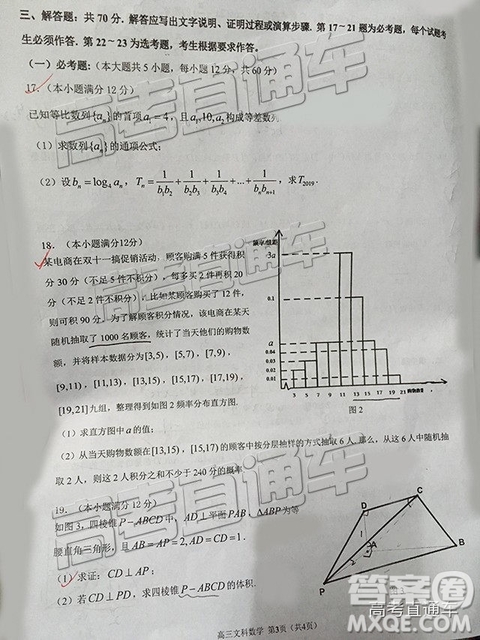 三、解答题：共70分．解答应写出文字说明、证明过程或演算步骤．第17～21题为必考题，每个试题考
生必须作答．第22～23为选考题，考生根据要求作答．
（一）必考题：（本大题共5小题，每小题12分，共60分）
17．（本小题满分12分）
已知等比数列{aₙ}的首项a₁=4，且a₁,10,a₂构成等差数列．
（1）求数列{aₙ}的通项公式；
（2）设bₙ=log₄aₙ，Tₙ=1/(b₁b₂)+1/(b₂b₃)+1/(b₃b₄)+...+1/(bₙbₙ₊₁)，求T₂₀₁₉．
18．（本小题满分12分）
某电商在双十一搞促销活动．顾客购满5件获得积
分30分（不足5件不积分），每多买2件再积20
分（不足2件不积分），比如某顾客购买了12件，
则可积90分．为了了解顾客积分情况，该电商在某天
随机抽取了1000名顾客，统计了当天他们的购物数
额，并将样本数据分为[3,5)，[5,7)，[7,9)，
[9,11)，[11,13)，[13,15)，[15,17)，[17,19)，
[19,21]九组，整理得到如图2频率分布直方图．
频率/组距
3a
0.1
a
0.04
0.03
0.02
0.01
3 5 7 9 11 13 15 17 19 21 购物数量
图2
（1）求直方图中a的值；
（2）从当天购物数额在[13,15)，[15,17)的顾客中按分层抽样的方式抽取6人．那么，从这6人中随机抽
取2人，则这2人积分之和不少于240分的概率
19．（本小题满分12分）
如图3，四棱锥P－ABCD中，AD⊥平面PAB，ΔABP为等
腰直角三角形，且PA=AB=2,AD=CD=1．
（1）求证：CD⊥AP；
（2）若CD⊥PD，求四棱锥P－ABCD的体积．
D
C
A
B
P
高三文科数学 第3页（共4页）
高考直通车
高考直通车
答案圈
高考直通车